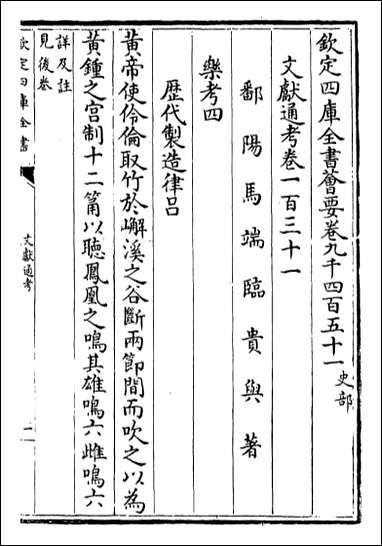 欽定四庫全書薈要卷九千四百五十一史部
文獻通考卷一百三十一
鄱陽馬端臨貴與著
樂考四
歴代製造律呂
黄帝使伶倫取竹於嶰溪之谷斷兩節間而吹之以為
黄鍾之宫制十二筩以聽鳳凰之鳴其雄鳴六雌鳴六
詳及註
見後卷
欽定四庫全書
文獻通考
一